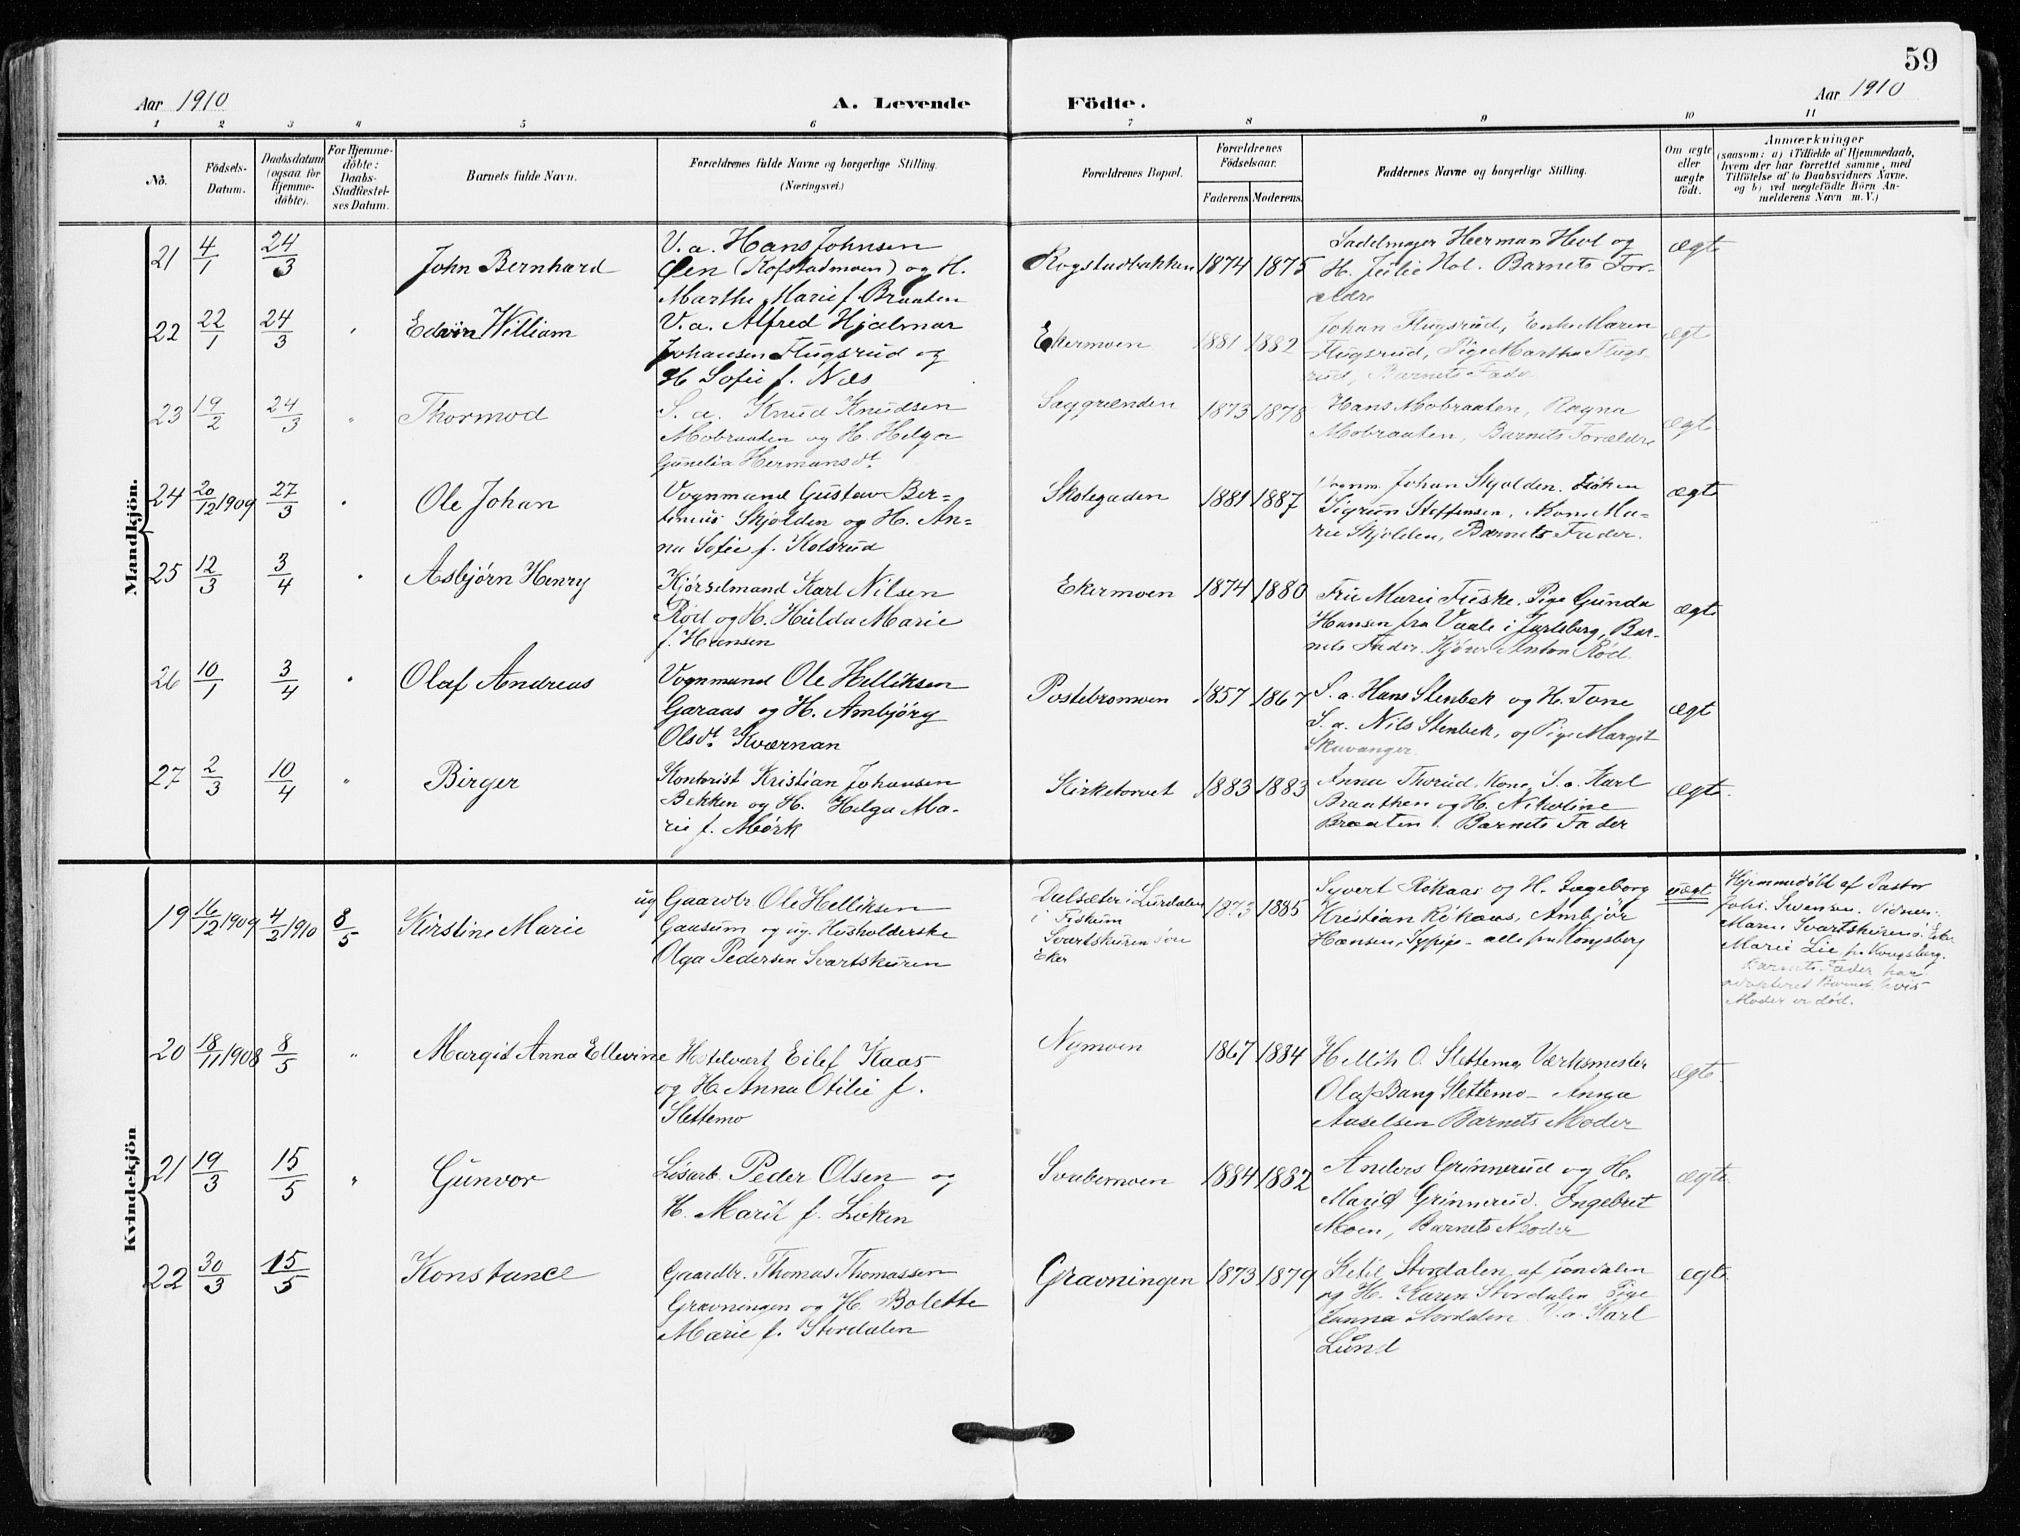 59
Aar 1910
A. Levende
Födte.
Aar 1910
1 2 3 4 5 6 7 8 9 10 11
No.
Födsels-
Datum.
Daabsdatum
(ogsaa for
Hjemme-
döbte).
For Hjemme-
döbte:
Daabs-
Stadfæstel-
ses Datum.
Barnets fulde Navn.
Forældrenes fulde Navne og borgerlige Stilling.
(Næringsvei.)
Forældrenes Bopæl.
Forældrenes
Födselsaar.
Faderens Moderens
Faddernes Navne og borgerlige Stilling.
Om ægte
eller
uægte
födt.
Anmærkninger
(saasom: a) i Tilfælde af Hjemmedaab,
hvem der har forrettet samme, med
Tilföielse af to Daabsvidners Navne,
og b) ved uægtefödte Börn An-
melderens Navn m. V.)
Mandkjön.
21 4/1 24/3 John Bernhard
V. a. Hans Johnsen
Øen (Kofstadmoen) og H.
Marthe Marie f. Braaten
Rogstadbakken 1874 1875
Sadelmager Herman Hvol og
H. Julie Hol. Barnets For-
ældre
ægte
22 22/1 24/3 Edvin William
V. a. Alfred Hjalmar
Johansen Flugsrud og
H Sofie f. Næs
Ekermoen 1881 1882
Johan Flugsrud, Enke Maren
Flugsrud, Pige Martha Flugs
rud, Barnets Fader
ægt
23 19/2 24/3 " Thormod
S. a. Knud Knudsen
Mobraaten og H. Helga
Gunelia Hermansdt.
Saggrenden 1873 1878
Hans Mobraaten, Ragna
Mobraaten, Barnets Forældre
ægte
24 20/12 1909 27/3 Ole Johan
Vognmand Gustav Ber-
tinius Skjolden og H. An-
na Sofie f. Kolsrud
Skolegaden 1881 1887
Vognm. Johan Skjolden. Frøken
Sigrun Steffensen, Kone Ma-
rie Skjolden, Barnets Fader.
ægte
25 12/3 3/4 Asbjørn Henry
Kjørselmand Karl Nilsen
Rød og H. Hulda Marie
f. Hansen
Ekermoen 1874 1880
Fru Marie Fiske. Pige Gunda
Hansen fra Vaale i Jarlsberg, Bar-
nets Fader. Kjører Anton Rød.
ægte
26 10/1 3/4 Olaf Andreas
Vognmand Ole Helliksen
Garaas og H. Ambjørg
Olsdt. Kværnan
Postebromoen 1857 1867
S. a. Hans Stenbek og H. Tone
S. a. Nils Stenbek, og Pige Margit
Skavanger.
ægt
27 2/3 10/4 " Birger
Kontorist Kristian Johansen
Bekken og H. Helga Ma-
rie f. Mørk
Kirketorvet 1883 1883
Anna Thorud, Kone, S. a. Karl
Braathen og H. Nikoline
Braaten. Barnets Fader
ægte.
Kvindekjön
19 16/12 1909 4/2 1910 8/5 Kirstine Marie
ug Gaardbr Ole Helliksen
Gaasum og ug. Husholderske
Olga Pedersen Svartskuren
Dalsæter i Lurdalen
i Fiskum
Svartskuren Øvre
Eker
1873 1885
Syvert Røkaas og H. Ingeborg
Kristian Røkaas, Ambjør
Hansen, Sypige - alle fra Kongsberg
uægt
Hjemmedøbt af Pastor
Johs. Svensen. Vidner:
Maren Svartskuren Ø. Eker
Marie Lie fr. Kongsberg.
Barnets Fader har
adopteret Barnet, hvis
Moder er død.
20 18/11 1908 8/5 " Margit Anna Ellevine
Hotelvært Eilef Kaas
og H. Anna Otilie f.
Slettemo
Nymoen 1867 1884
Hellik O. Slettemo, Værksmester
Olaf Bang Slettemo - Anna
Axelsen Barnets Moder
ægte.
21 19/3 15/5 " Gunvor
Løsarb. Peder Olsen og
H. Marit f. Løken
Svabemoen 1884 1882
Anders Grinnerud og H.
Marid Grinnerud. Ingebret
Moen, Barnets Moder
ægte
22 30/3 15/5 Konstance
Gaardbr. Thomas Thomassen
Gravningen og H. Bolette
Marie f. Stordalen
Gravningen 1873 1879
Ketil Stordalen af Jondalen
og H. Karen Stordalen Pige
Hanna Stordalen V. a. Karl
Lund
ægte